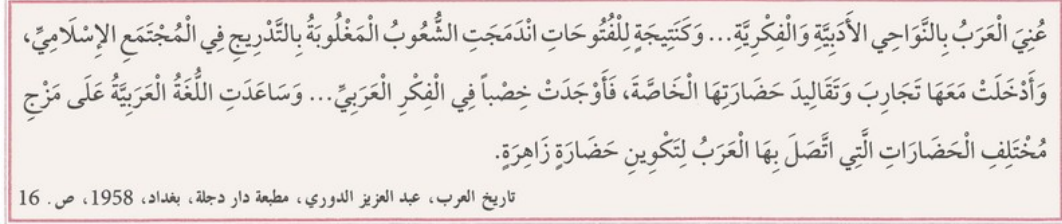 عُنِيَ الْعَرَبُ بِالنَّوَاحِي الأَدَبِيَّةِ وَالْفِكْرِيَّةِ... وَكَنَتِيجَةٍ لِلْفُتُوحَاتِ انْدَمَجَتِ الشُّعُوبُ الْمَغْلُوبَةُ بِالتَّدْرِيجِ فِي الْمُجْتَمَعِ الإِسْلَامِيِّ،
وَأَدْخَلَتْ مَعَهَا تَجَارِبَ وَتَقَالِيدَ حَضَارَتِهَا الْخَاصَّةَ، فَأَوْجَدَتْ خِصْباً فِي الْفِكْرِ الْعَرَبِيِّ... وَسَاعَدَتِ اللُّغَةُ الْعَرَبِيَّةُ عَلَى مَزْجِ
مُخْتَلِفِ الْحَضَارَاتِ الَّتِي اتَّصَلَ بِهَا الْعَرَبُ لِتَكْوِينِ حَضَارَةٍ زَاهِرَةٍ.
تاريخ العرب، عبد العزيز الدوري، مطبعة دار دجلة، بغداد، 1958، ص. 16